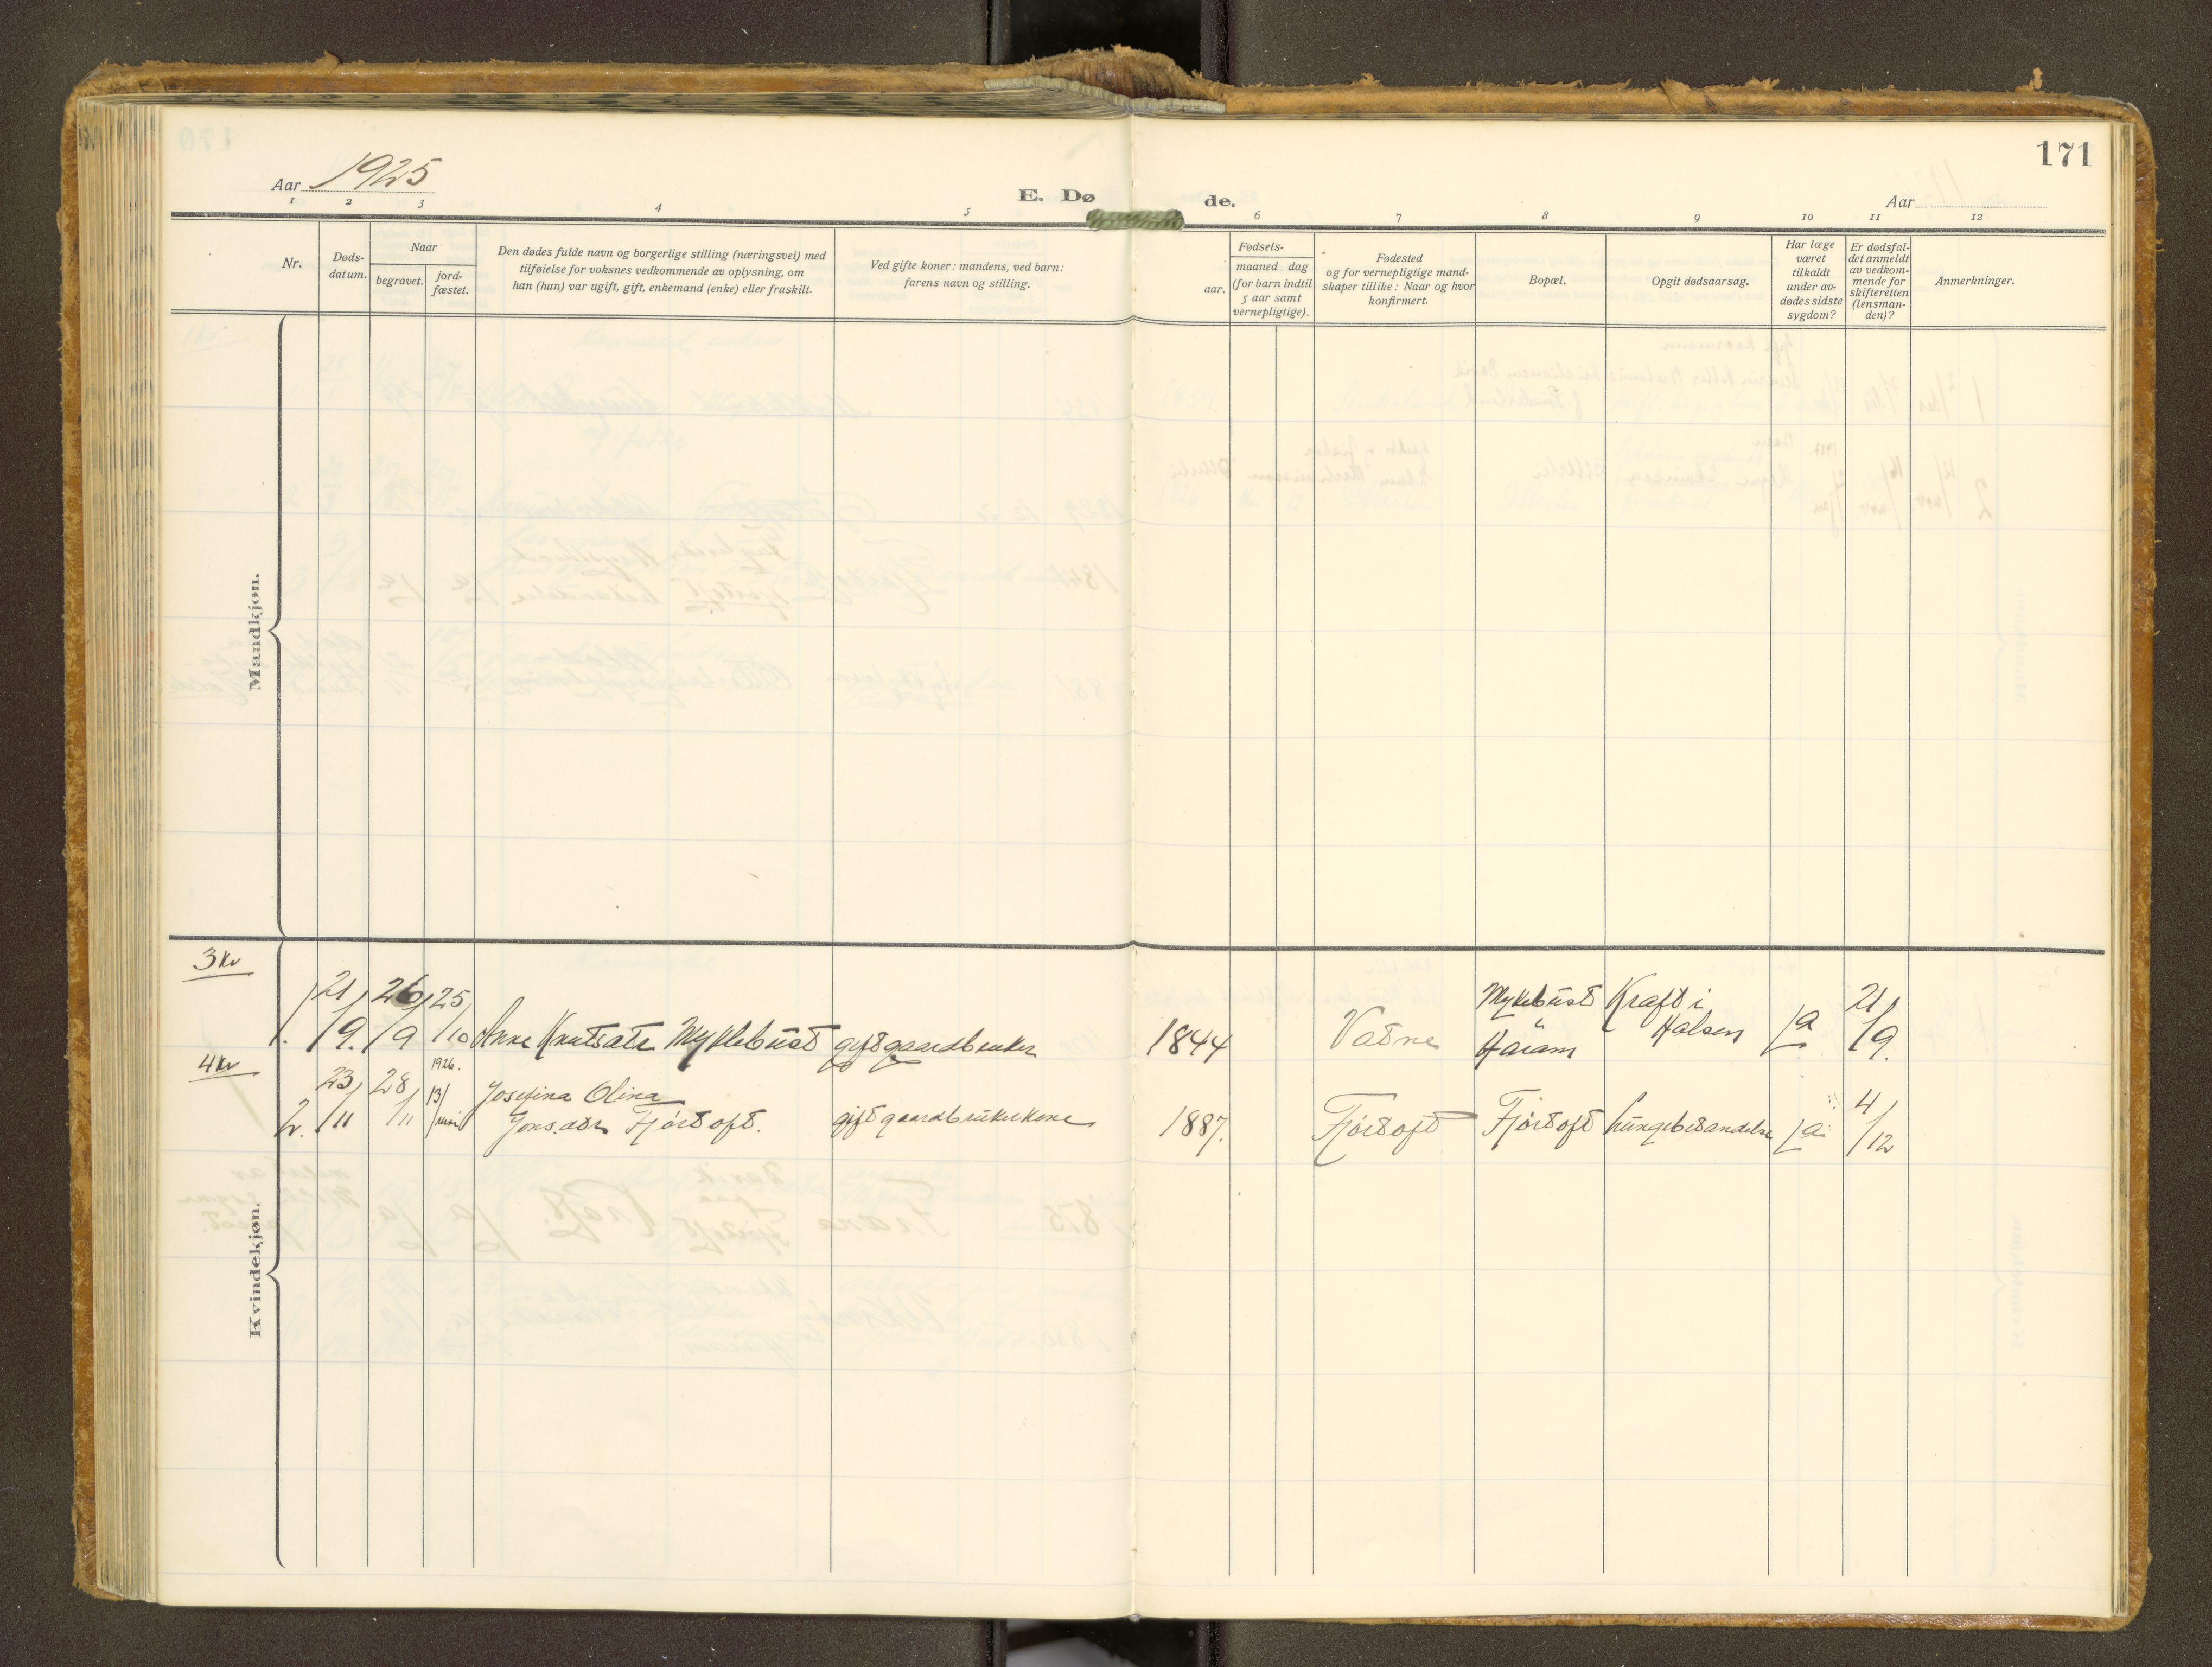 171
Aar 1925
E. Dø de.
Aar
1 2 3 4 5 6 7 8 9 10 11 12
Nr.
Døds-
datum.
Naar
begravet.
jord-
fæstet.
Den dødes fulde navn og borgerlige stilling (næringsvei) med
tilføielse for voksnes vedkommende av oplysning, om
han (hun) var ugift, gift, enkemand (enke) eller fraskilt.
Ved gifte koner: mandens, ved barn:
farens navn og stilling.
Fødsels-
aar.
maaned dag
(for barn indtil
5 aar samt
vernepligtige).
Fødested
og for vernepligtige mand-
skaper tillike: Naar og hvor
konfirmert.
Bopæl.
Opgit dødsaarsag.
Har læge
været
tilkaldt
under av-
dødes sidste
sygdom?
Er dødsfal-
det anmeldt
av vedkom-
mende for
skifteretten
(lensman-
den)?
Anmerkninger.
Mandkjøn.
Kvindekjøn.
3 kv
1. 21/9. 26/9 25/10 Anne Knutsatr Myklebust gift gaardbruker 1844 Vatne Myklebust Haram Kraft i Halsen ja 21/9.
4 kv
2. 23/11 28/11 1926. 13/juni Josefina Olina
Jonsdtr Fjørtoft. gift gaardbrukerkone 1887. Fjørtoft Fjørtoft lungebetændelse ja 4/12